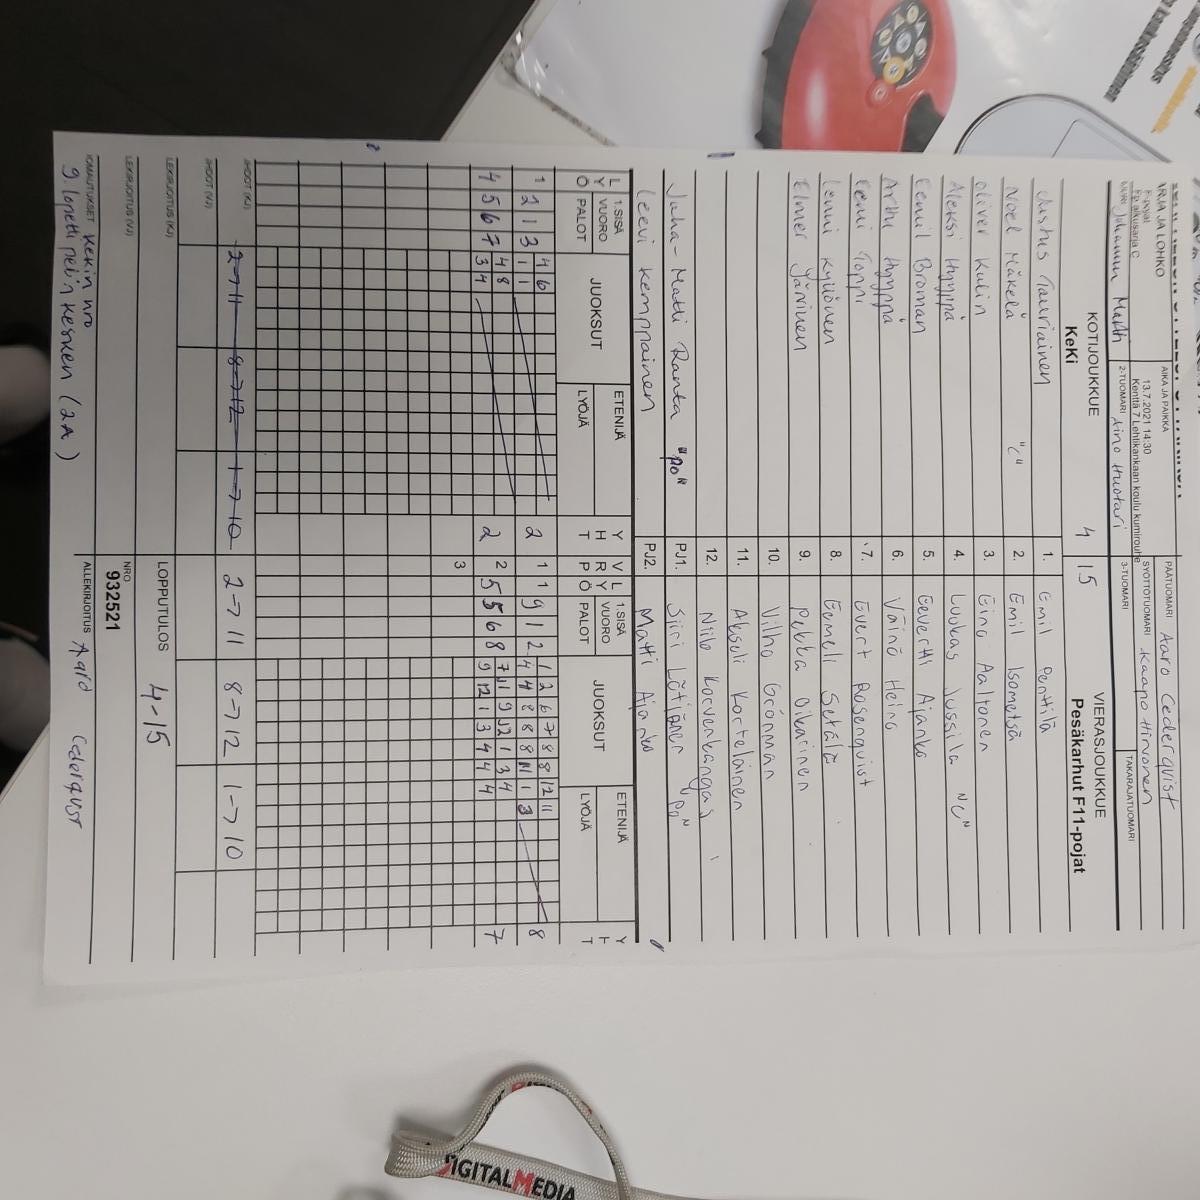 SARJA JA LOHKO
F-pojat
Fp alkusarja C
AIKA JA PAIKKA
13.7.2021 14:30
Kenttä 7 Lehtikankaan koulu kumirouhe
PÄÄTUOMARI Aaro Cederqvist
SYÖTTÖTUOMARI Kaapo Hirvonen
2-TUOMARI Aino Huotari
3-TUOMARI
TAKARAJATUOMARI
KOTIJOUKKUE
KeKi
4
15
VIERASJOUKKUE
Pesäkarhut F11-pojat
Justus Tauriainen 1. Emil Penttilä
Noel Mäkelä "C" 2. Emil Isometsä
Oliver Kulin 3. Eino Aaltonen
Aleksi Hyyppä 4. Luukas Jussila "C"
Eemil Broman 5. Eevertti Ajanko
Arttu Hyyppä 6. Väinö Heino
Eemi Toppi 7. Evert Rosenqvist
Lenni Kyllönen 8. Eemeli Setälä
Elmer Järvinen 9. Pekka Oikarinen
10. Vilho Grönman
11. Akseli Kortelainen
12. Niilo Korvenkangas
Juha-Matti Ranta "PO" PJ1. Siiri Lötjönen PO"
Leevi Kemppainen PJ2. Matti Ajanko
L Y Ö 1.SISÄ VUORO PALOT JUOKSUT ETENIJÄ LYÖJÄ Y H T V R P L Y Ö 1.SISÄ VUORO PALOT JUOKSUT ETENIJÄ LYÖJÄ Y H T
4 6 1 2 6 7 8 8 12 11
1 2 1 3 1 1 2 1 1 9 1 2 4 4 8 8 8 11 1 3 8
4 8 7 11 9 12 1 3 4
4 5 6 7 3 4 2 2 5 5 6 8 9 12 1 3 4 4 4 7
3
JHDOT (KJ) 2→11 8→12 1→10 2→11 8→12 1→10
JHDOT (VJ)
LEKIRJOITUS (KJ)
LOPPUTULOS 4-15
LEKIRJOITUS (VJ)
NRO
932521
HUOMAUTUKSET KeKin nro
9. lopetti pelin kesken (2A)
ALLEKIRJOITUS Aaro Cederqvist
DIGITALMEDIA